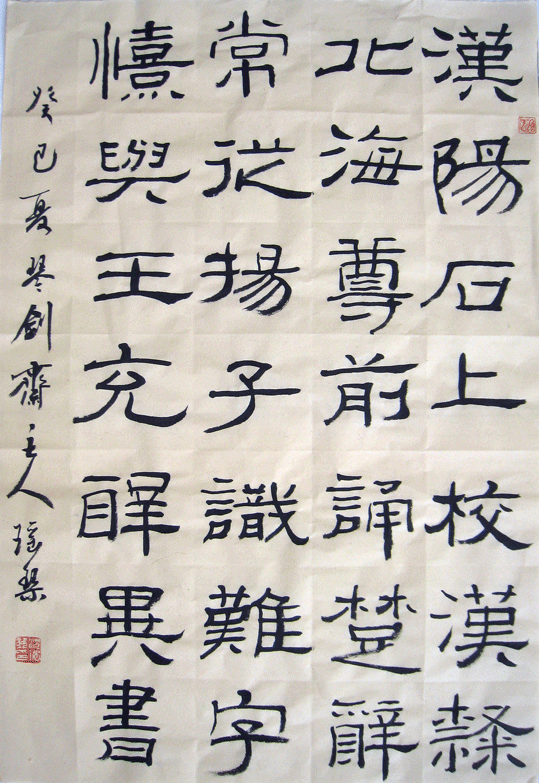 漢陽石上校漢隸
北海尊前誦楚辭
常從揚子識難字
憘與王充異書
癸巳夏琴劍齋主人瑤琴